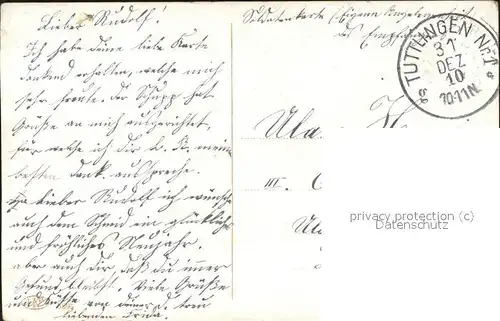 Lieber Rudolf!
Ich habe deine liebe Karte
dankend erhalten, welche mich
sehr freute. Der Schupp hat
Grüße an mich ausgerichtet,
für welche ich dir l. R. meinen
besten Dank ausspreche.
lieber Rudolf ich wünsche
auch dem Schmid ein glückliches
und fröhliches Neujahr.
aber auch dir, daß du immer
gesund bleibst. Viele Grüße
und Küsse von deiner d. treu
liebenden Frida.
Soldatenkarte (Eigene Angelegenheit
des Empfängers
TUTTLINGEN
31
DEZ
10
10-11N.
Ula
III.
privacy protection (c)
Datenschutz